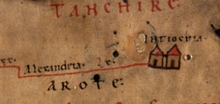 TANCHIRE
ANTIOCHIA
Alexandria.
AROTE: